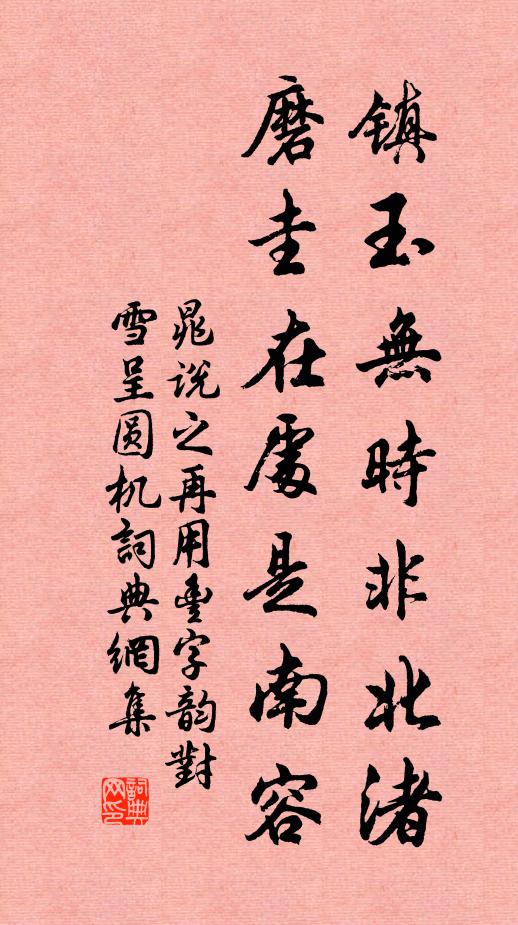 镇玉無時非北渚
磨圭在處是南容
晁说之再用豐字韵對
雪呈圆机詞典網集
詞典网印